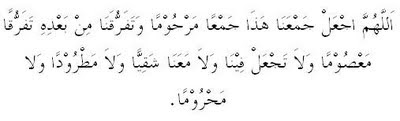 اَللّٰهُمَّ اجْعَلْ جَمْعَنَا هَذَا جَمْعًا مَرْحُوْمًا وَتَفَرُّقَنَا مِنْ بَعْدِهِ تَفَرُّقًا
مَعْصُوْمًا وَلاَ تَجْعَلْ فِيْنَا وَلاَ مَعَنَا شَقِيًّا وَلاَ مَطْرُوْدًا وَلاَ
مَحْرُوْمًا.